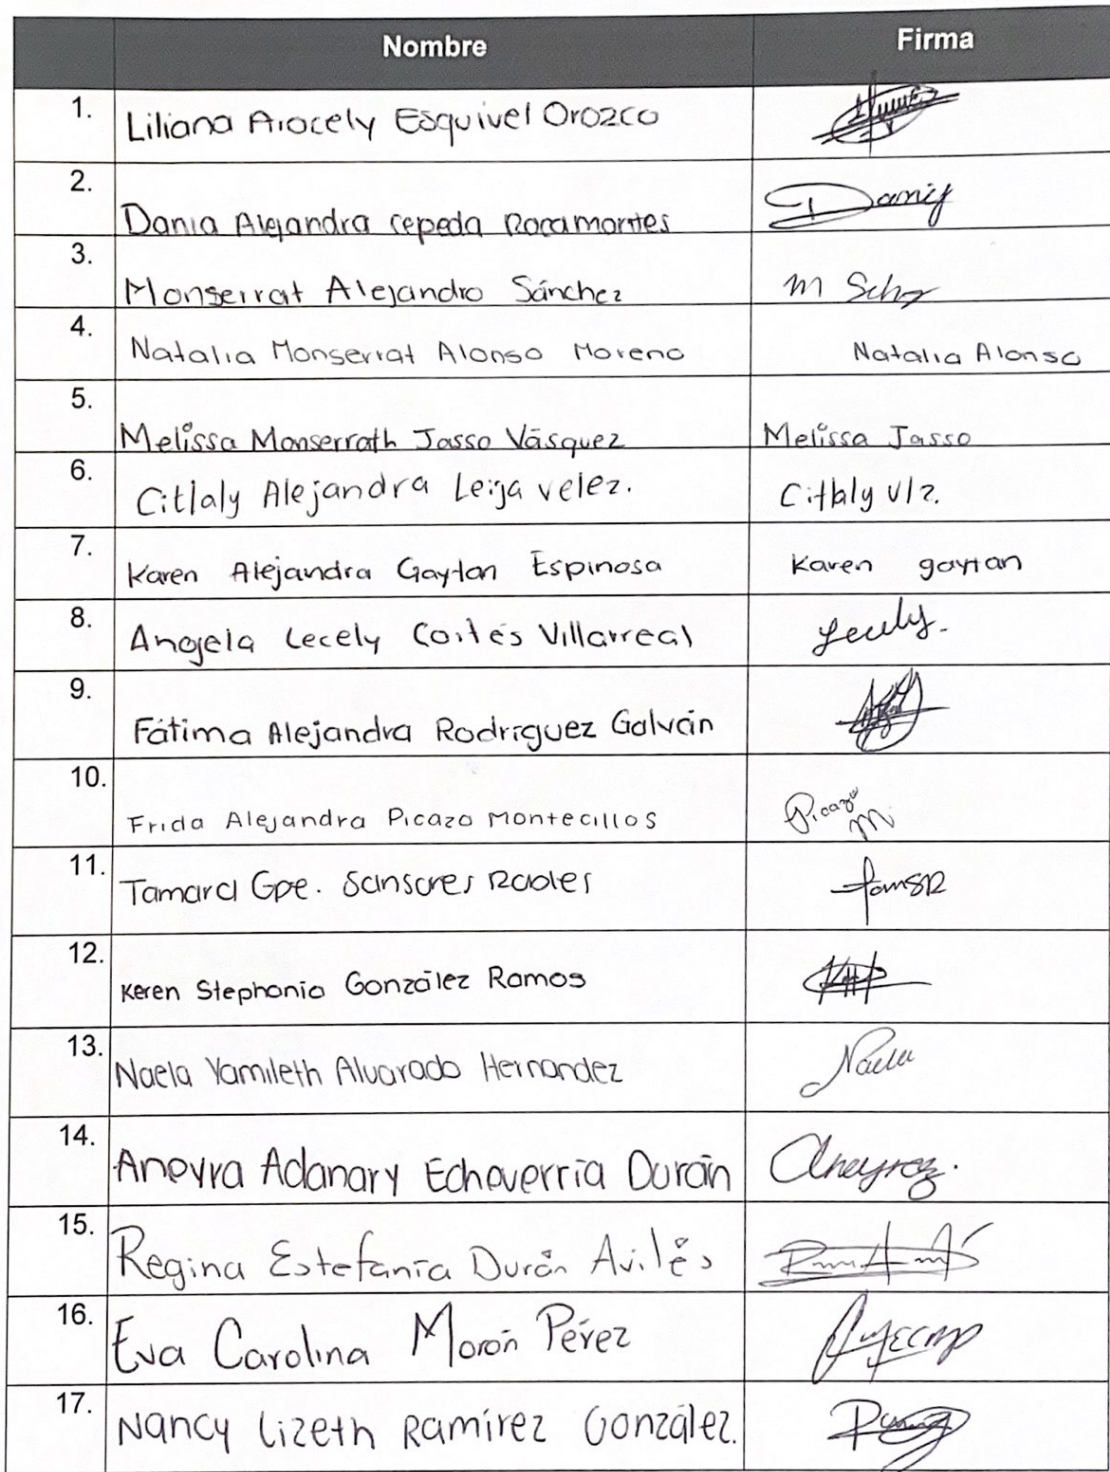 Nombre Firma
1. Liliana Aracely Esquivel Orozco
2. Dania Alejandra cepeda Rocamontes Dany
3. Monserrat Alejandro Sánchez M Schz
4. Natalia Monserrat Alonso Moreno Natalia Alonso
5. Melissa Monserrath Jasso Vásquez Melissa Jasso
6. Citlaly Alejandra Leija velez. Citlaly Vlz.
7. Karen Alejandra Gaytan Espinosa Karen gaytan
8. Angela Lecely Cortés Villarreal Lecely.
9. Fátima Alejandra Rodríguez Galván
10. Frida Alejandra Picazo Montecillos Picazo M.
11. Tamara Gpe. Sansores Robles TamSR
12. Keren Stephania González Ramos
13. Naela Yamileth Alvarado Hernandez Naela
14. Aneyra Adanary Echeverría Durán
15. Regina Estefanía Durán Avilés
16. Eva Carolina Morón Pérez
17. Nancy Lizeth Ramírez González.